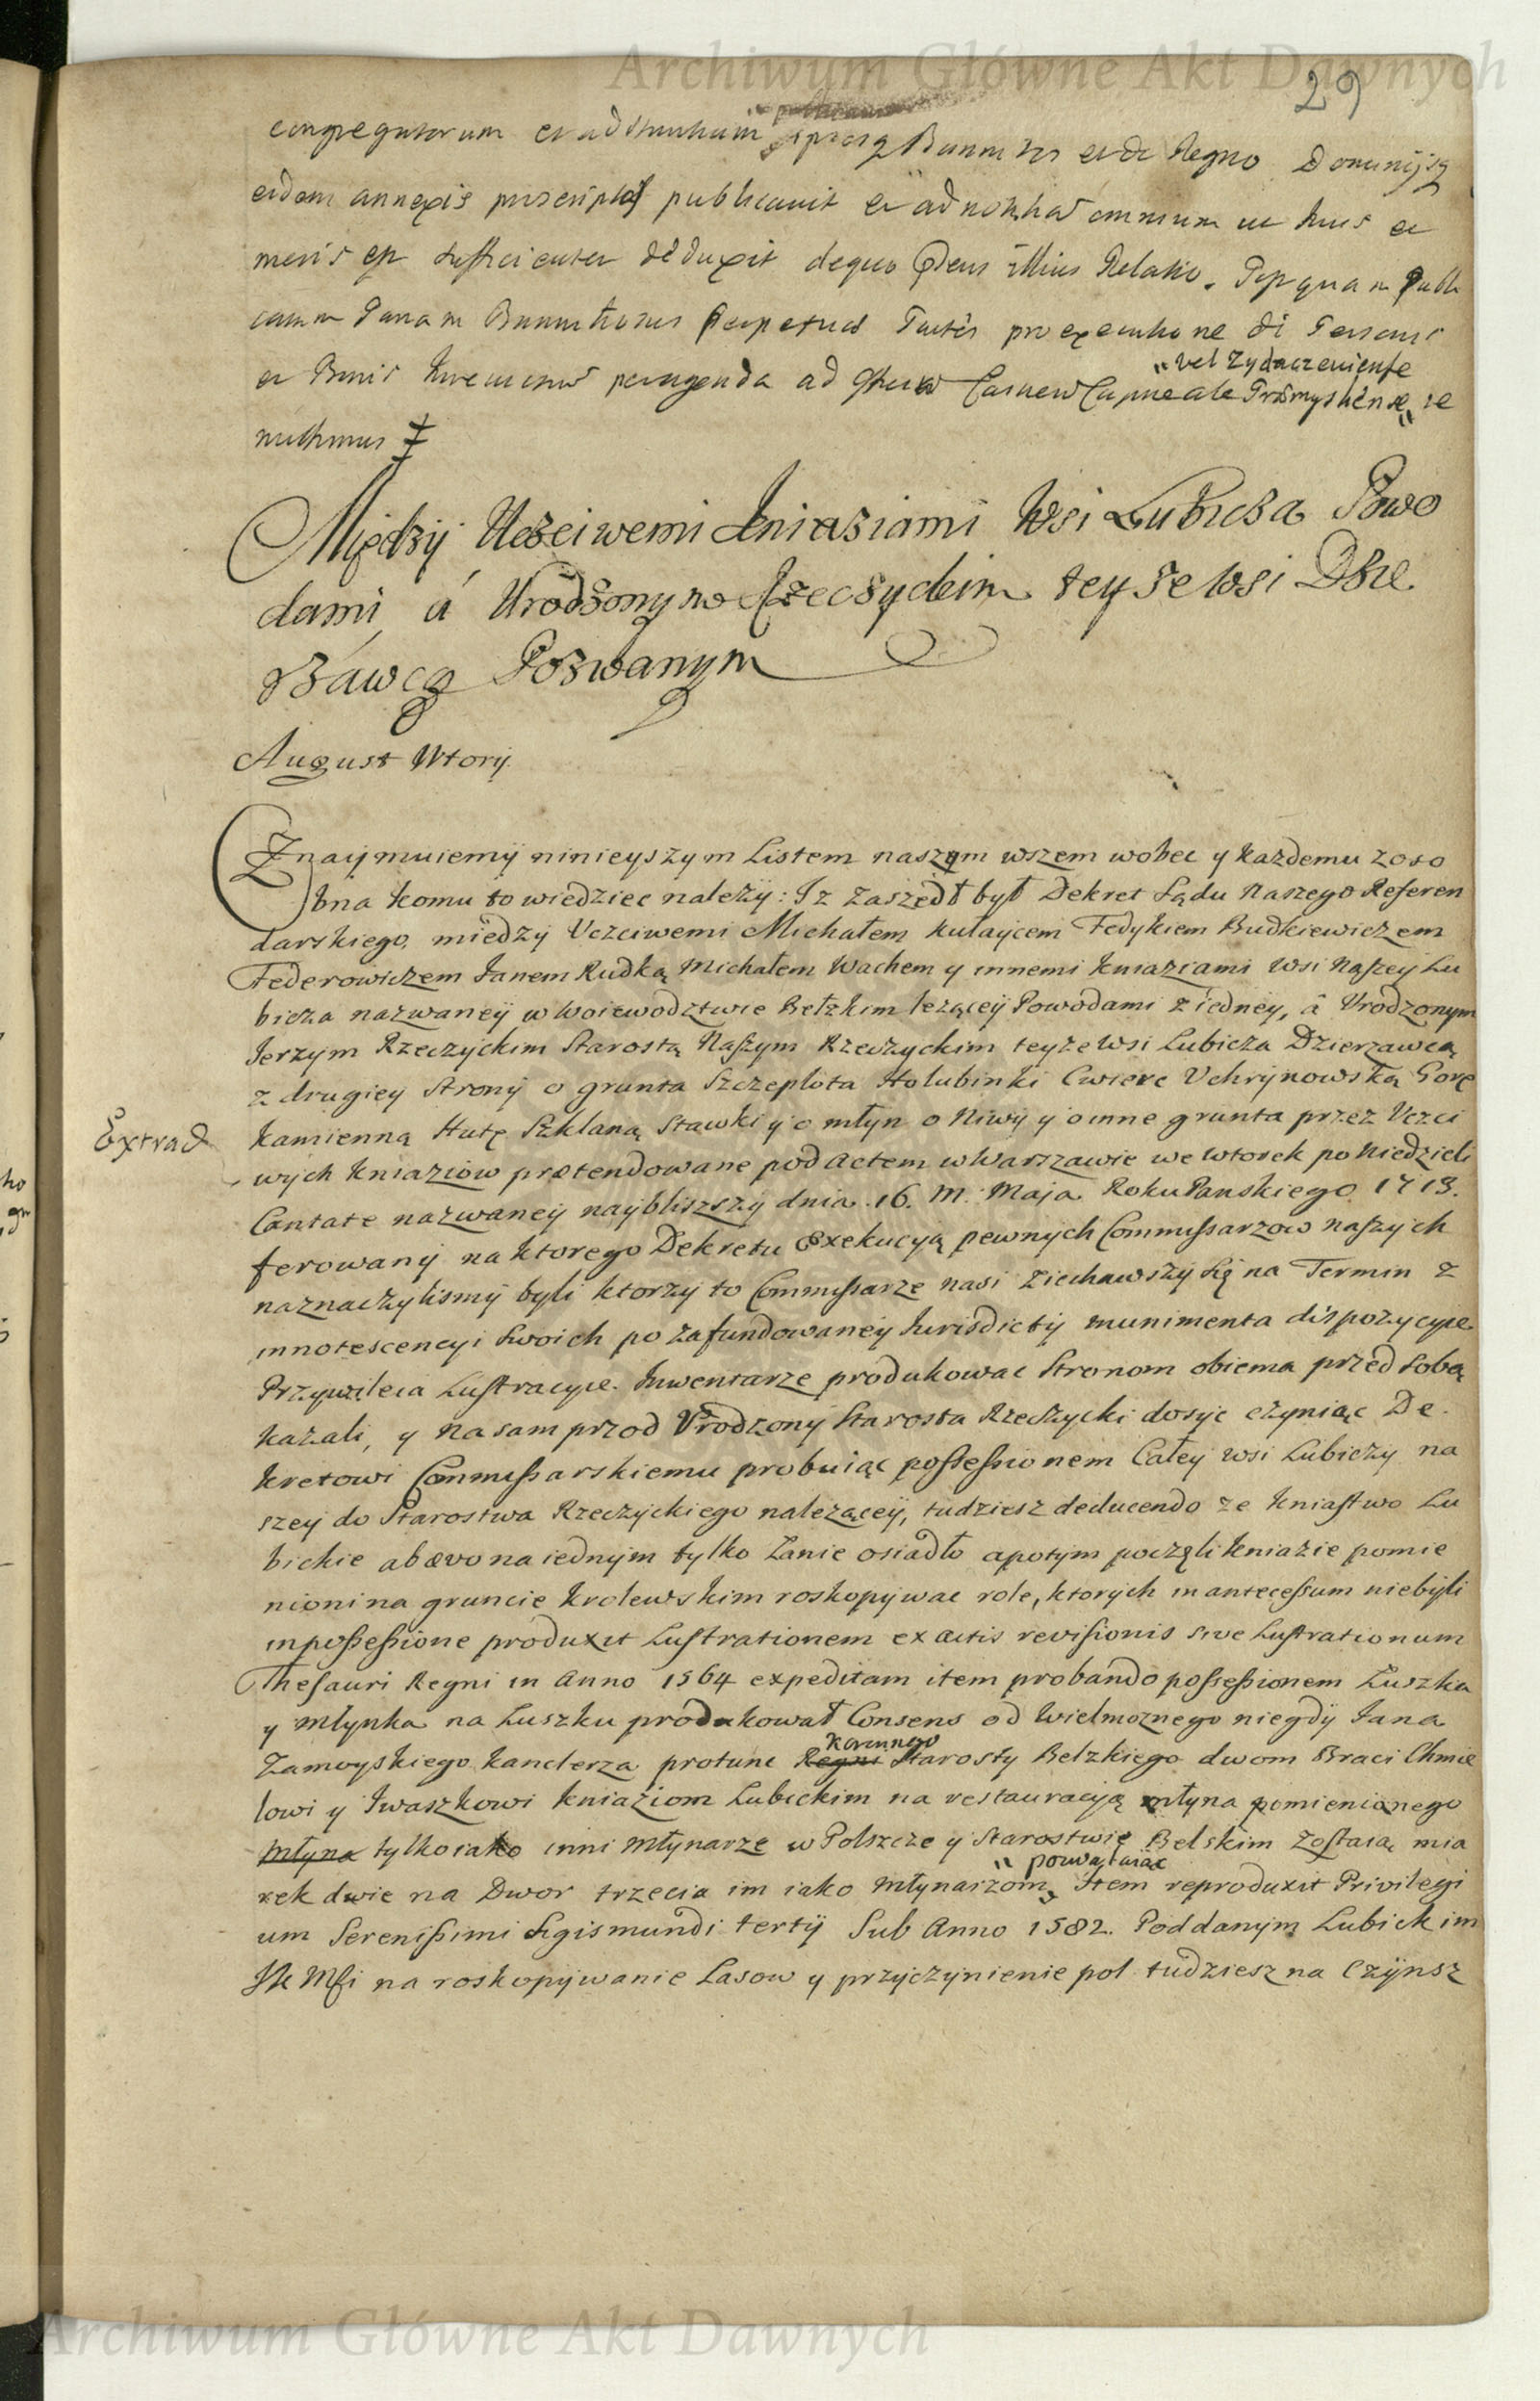 Archiwum Główne Akt Dawnych
29
congregatorum et ad Regno Dominijsq
eidem annexis proscriptos publicavit et ad notitiam omnium ut Juris et
moris est sufficienter deduxit de quo illius Relatio. Post quam publi
catam
et Bonis peragenda ad Castrense Capitaneale Præmysliense re
"vel Zydaczeniense
mittimus
Między Uczciwemi Kniaziami Wsi Lubicza Powo
dami á Urodzonym Rzeczyckim teyże wsi Dzie
rżáwcą Pozwanym
August Wtory
Znaiymuiemÿ ninieyszym Listem naszym wszem wobec y każdemu zoso
bna komu to wiedziec należÿ: Iz zaszedł był Dekret Sądu Naszego Referen
darskiego, między Uczciwemi Michałem Kułaycem Fedykiem Budkiewiczem
Federowiczem Janem Rudką Michałem Wachem y innemi kniaziami wsi Naszey Lu
bicza nazwaneÿ w Woiewodztwie Bełzkim lezącey Powodami z iedney, â Urodzonym
Jerzym Rzeczyckim Starostą Naszym Rzeczyckim teyze wsi Lubicza Dzierzawcą
z drugiey strony o grunta Szczeplota Holubinki Cwierc Uchrynowską Gorę
Extrad
Kamienną Hutę Szklaną Stawki y o młyn o Niwÿ y o inne grunta przez Uczci
wych kniaziow prætendowane pod actem w Warszawie we wtorek po Niedzieli
Cantate nazwaneÿ nayblizszÿ dnia 16. M. Maja Roku Panskiego 1713.
ferowany na ktorego Dekretu Exekucyą pewnych Commissarzow naszych
naznaczylismÿ byli ktorzy to Commissarze nasi ziechawszÿ się na Termin z
innotescencyi swoich po zafundowaneÿ Jurisdictÿ munimenta dispozycye
Przywileia Lustracye Inwentarze produkowac stronom obiema przed sobą
kazali, y na sam przod Urodzonÿ Starosta Rzeczycki dosyc czyniąc De
kretowi Commissarskiemu probuiąc possessionem Całey wsi Lubiczy na
szey do Starostwa Rzeczyckiego naleząceÿ, tudziesz deducendo ze kniastwo Lu
bickie ab ævo na iednym tylko Łanie osiadło a potym poczęli kniazie pomie
nioni na gruncie krolewskim roskopywac role, ktorych in antecessum niebÿli
in possessione produxit Lustrationem ex actis revisionis sive Lustrationum
Thesauri Regni in Anno 1564 expeditam item probando possessionem Łuszka
y Młynka na Łuszku produkował Consens od Wielmoznego niegdy Jana
koronnego
Zamoyskiego kanclerza protunc Regni Starosty Belzkiego dwom Braci Chmie
lowi y Iwaszkowi kniaziom Lubickim na restauracyą młyna pomienionego
Młyna tylko iako inni Młynarze w Polszcze y Starostwie Belskim zostaią mia
rek dwie na Dwor trzecia im iako Młynarzom, Item reproduxit Privilegi
um Serenissimi Sigismundi tertÿ Sub Anno 1582. Poddanym Lubickim
na roskopywanie Lasow y przyczynienie pol tudziesz na Czÿnsz
Archiwum Główne Akt Dawnych